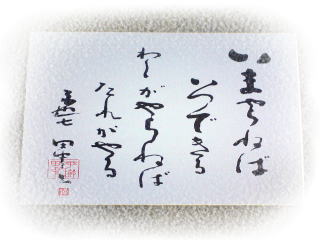 いまやらねば
いつできる
わしがやらねば
たれがやる
田中